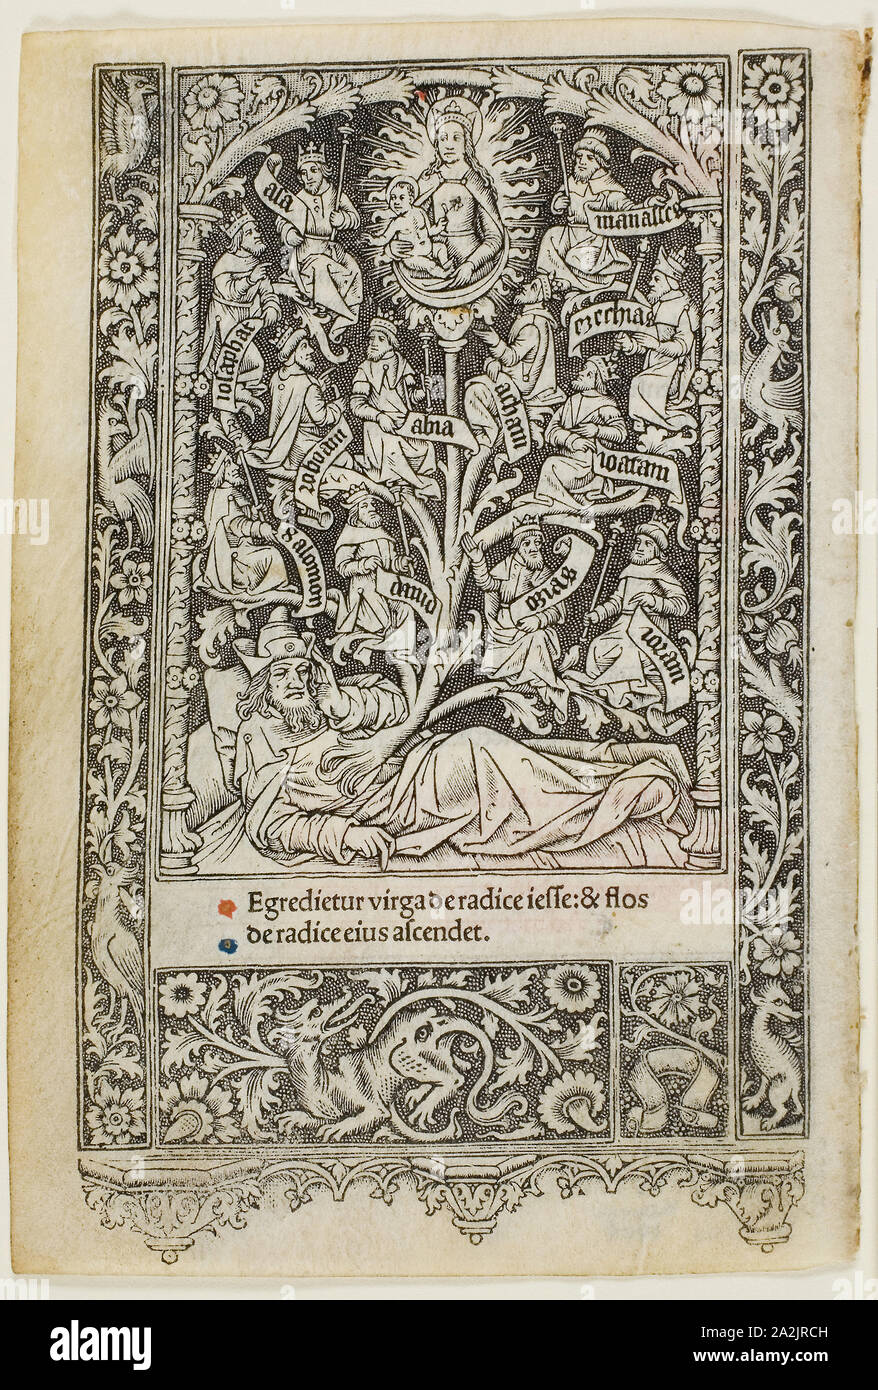 asa
manasses
iosaphat
ezechias
roboam
abia
acham
ioatam
Salomon
david
osias
ioram
Egredietur virga de radice iesse: & flos
de radice eius ascendet.
alamy
Image ID: 2A2JRCH
www.alamy.com